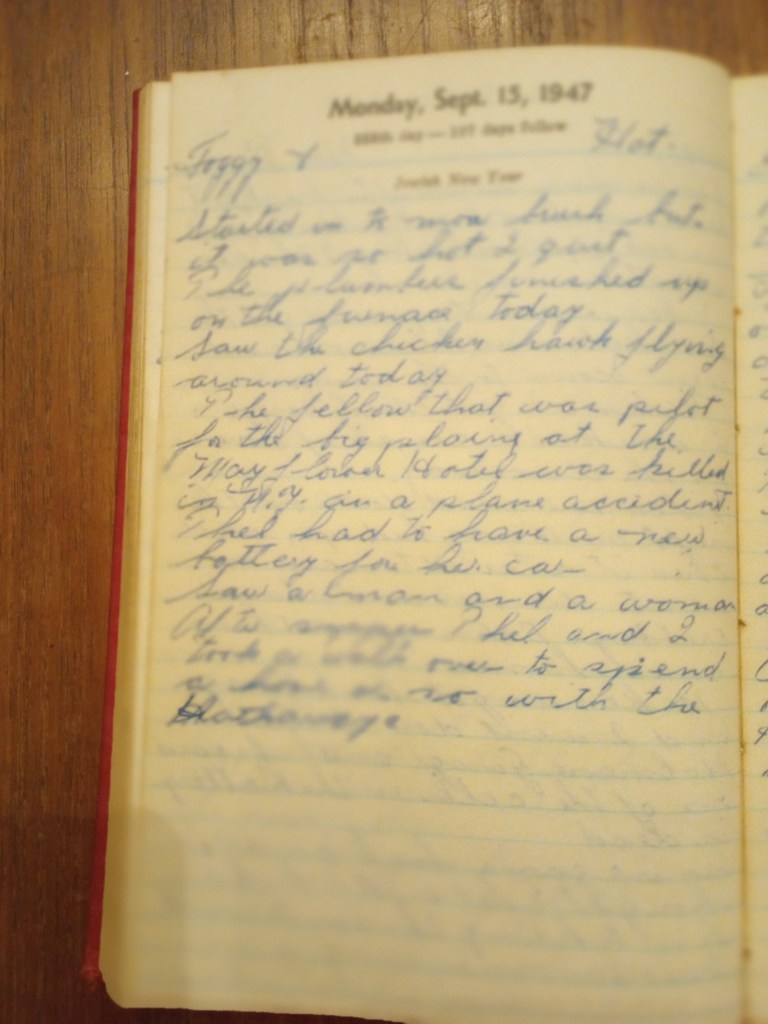 Monday, Sept. 15, 1947
258th day — 107 days follow
Foggy & Hot.
Jewish New Year
Started in to mow brush but
it was so hot I quit
The plumbers finished up
on the furnace today
Saw the chicken hawk flying
around today
The fellow that was pilot
for the big plaine at the
Mayflower Hotel was killed
in N.Y. in a plane accident.
Phel had to have a new
battery for her car
Saw a man and a woman
After supper Phel and I
took a walk over to spend
a hour or so with the
Hathaways